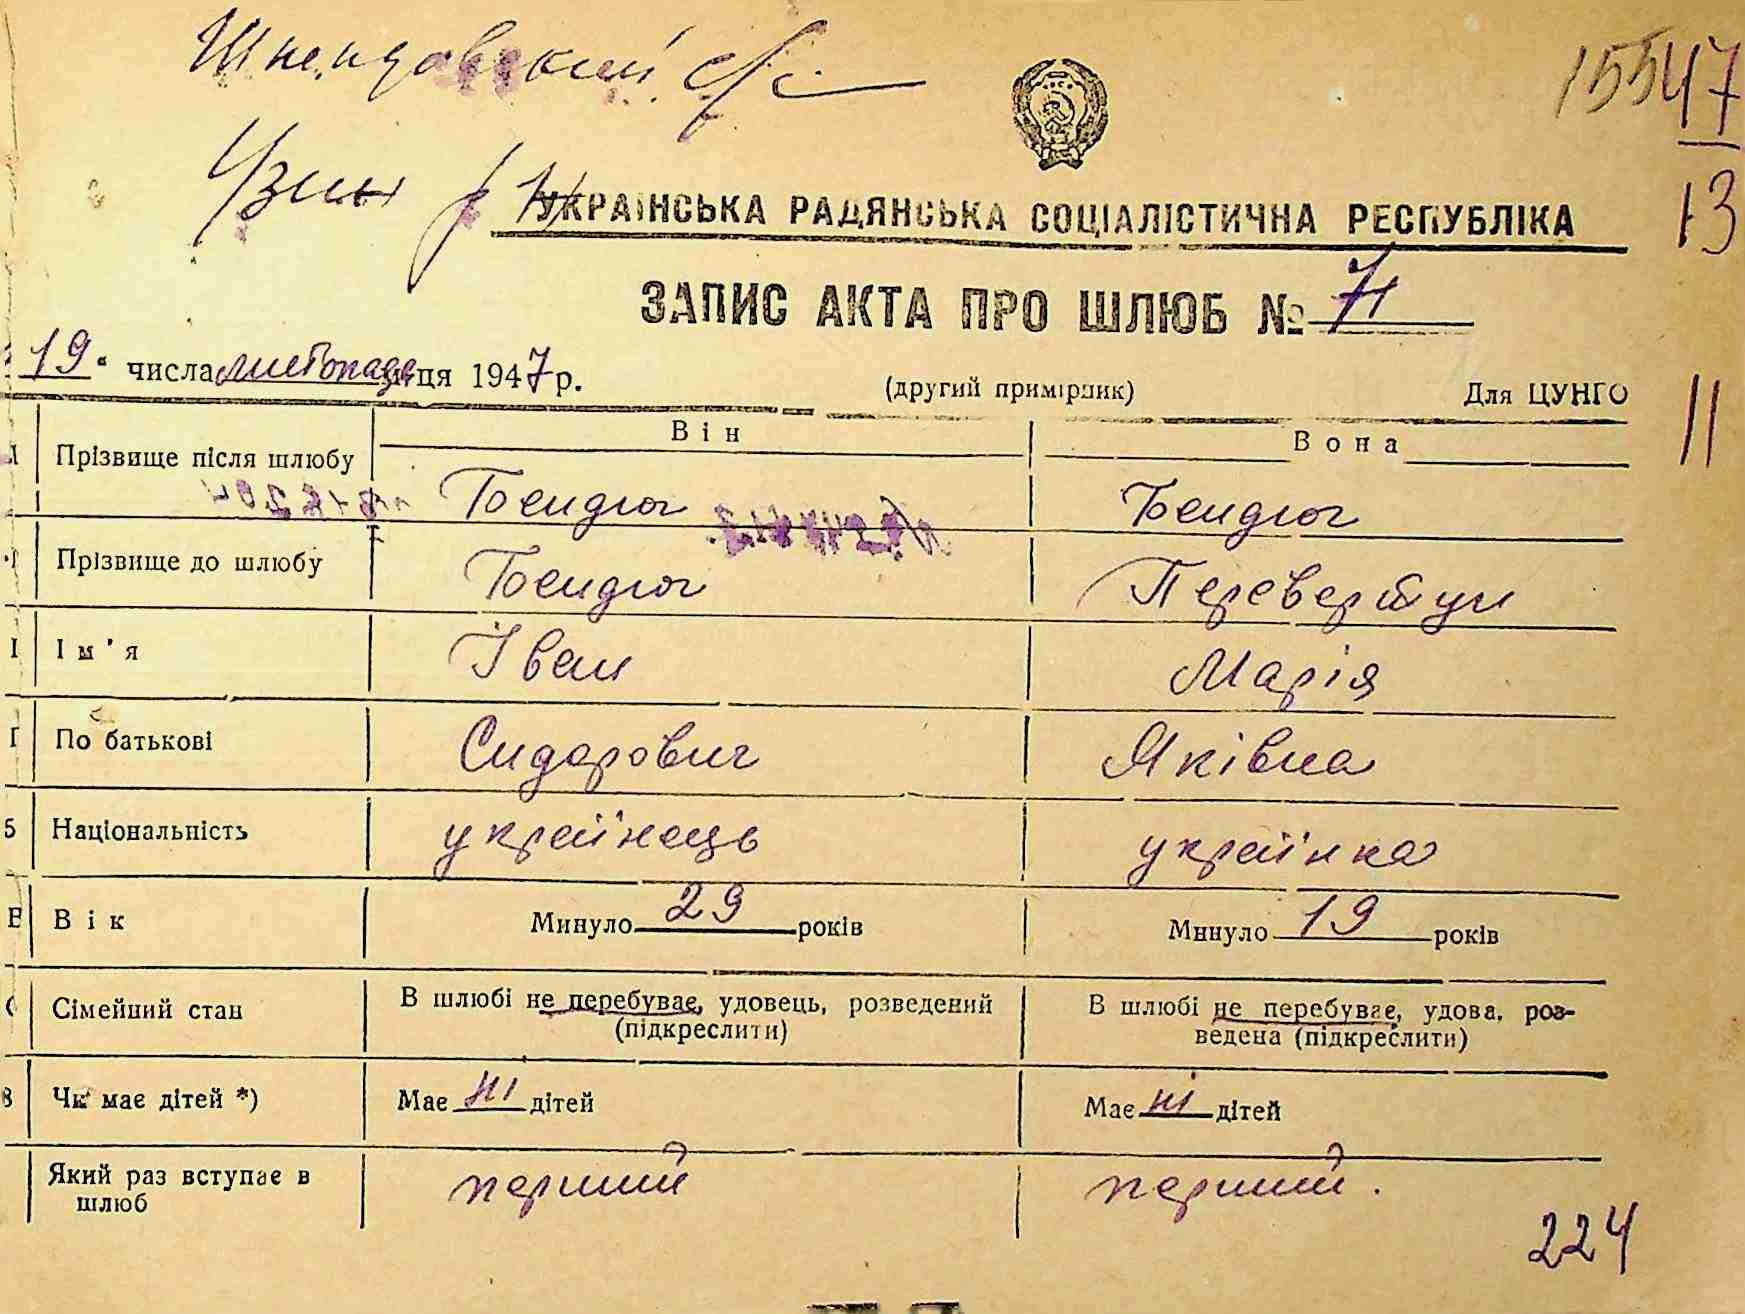 Узин
15547
13
УКРАЇНСЬКА РАДЯНСЬКА СОЦІАЛІСТИЧНА РЕСПУБЛІКА
ЗАПИС АКТА ПРО ШЛЮБ № 71
19 числа листопада місяця 1947 р. (другий примірник) Для ЦУНГО
11
Він Вона
Прізвище після шлюбу Бендюг Бендюг
Прізвище до шлюбу Бендюг Перевертун
І Ім'я Іван Марія
По батькові Сидорович Яківна
5 Національність українець українка
Вік Минуло 29 років Минуло 19 років
Сімейний стан В шлюбі не перебуває, удовець, розведений (підкреслити) В шлюбі не перебуває, удова, роз-
ведена (підкреслити)
8 Чи має дітей *) Має ні дітей Має ні дітей
Який раз вступає в шлюб перший перший.
224